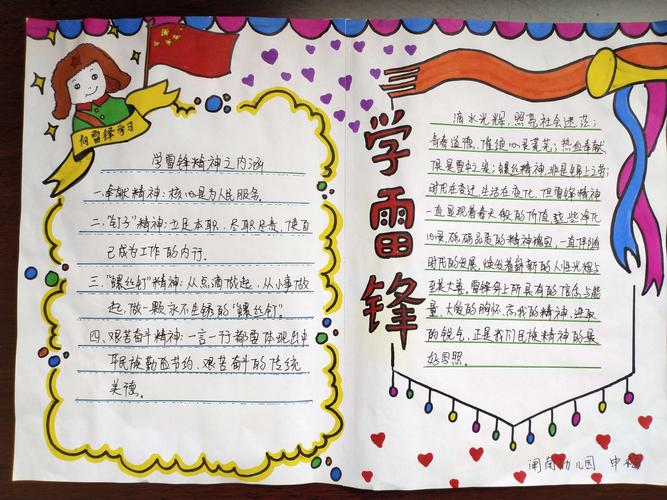 向雷锋学习
学雷锋精神之内涵
一.奉献精神:核心是为人民服务。
二."钉子"精神:立足本职、尽职尽责,使自
己成为工作的内行。
三."螺丝钉"精神:从点滴做起,从小事做
起,做一颗永不生锈的"螺丝钉"。
四.艰苦奋斗精神:一言一行都要体现出中
华民族勤俭节约、艰苦奋斗的传统
美德。
学雷锋
滴水光辉,照亮社会迷茫;
青春道德,催绽心灵
热血奉献,
螺丝精神,
时代在变迁,生活在变化,但雷锋精神
一直显现着春天般的价值,这些净化
心灵、砥砺品质的精神瑰宝,一直伴随
时代的发展,焕发着崭新的人性光辉与
至美大爱。雷锋身上所具有的信念与能
量、大爱的胸怀、忘我的精神、进取
的锐气,正是我们民族精神的最
好写照。
幼儿园 申